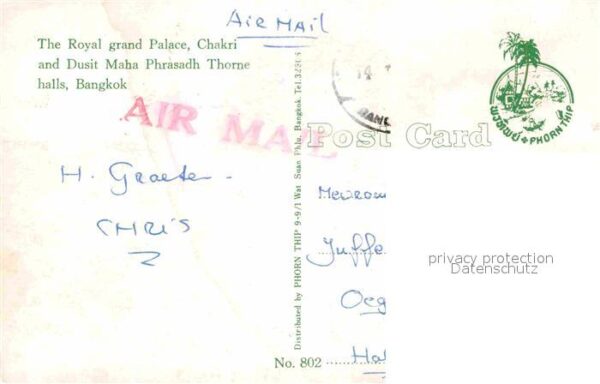 Air Mail
The Royal grand Palace, Chakri
and Dusit Maha Phrasadh Thorne
halls, Bangkok
AIR MAIL
H. Groeten
CHRIS
Distributed by PHORN THIP 9-9/1 Wat Suan Phlu, Bangkok. Tel.
14
Post Card
พรทิพย์ PHORN THIP
Mevrouw
Juffe
Oeg
privacy protection
Datenschutz
No. 802